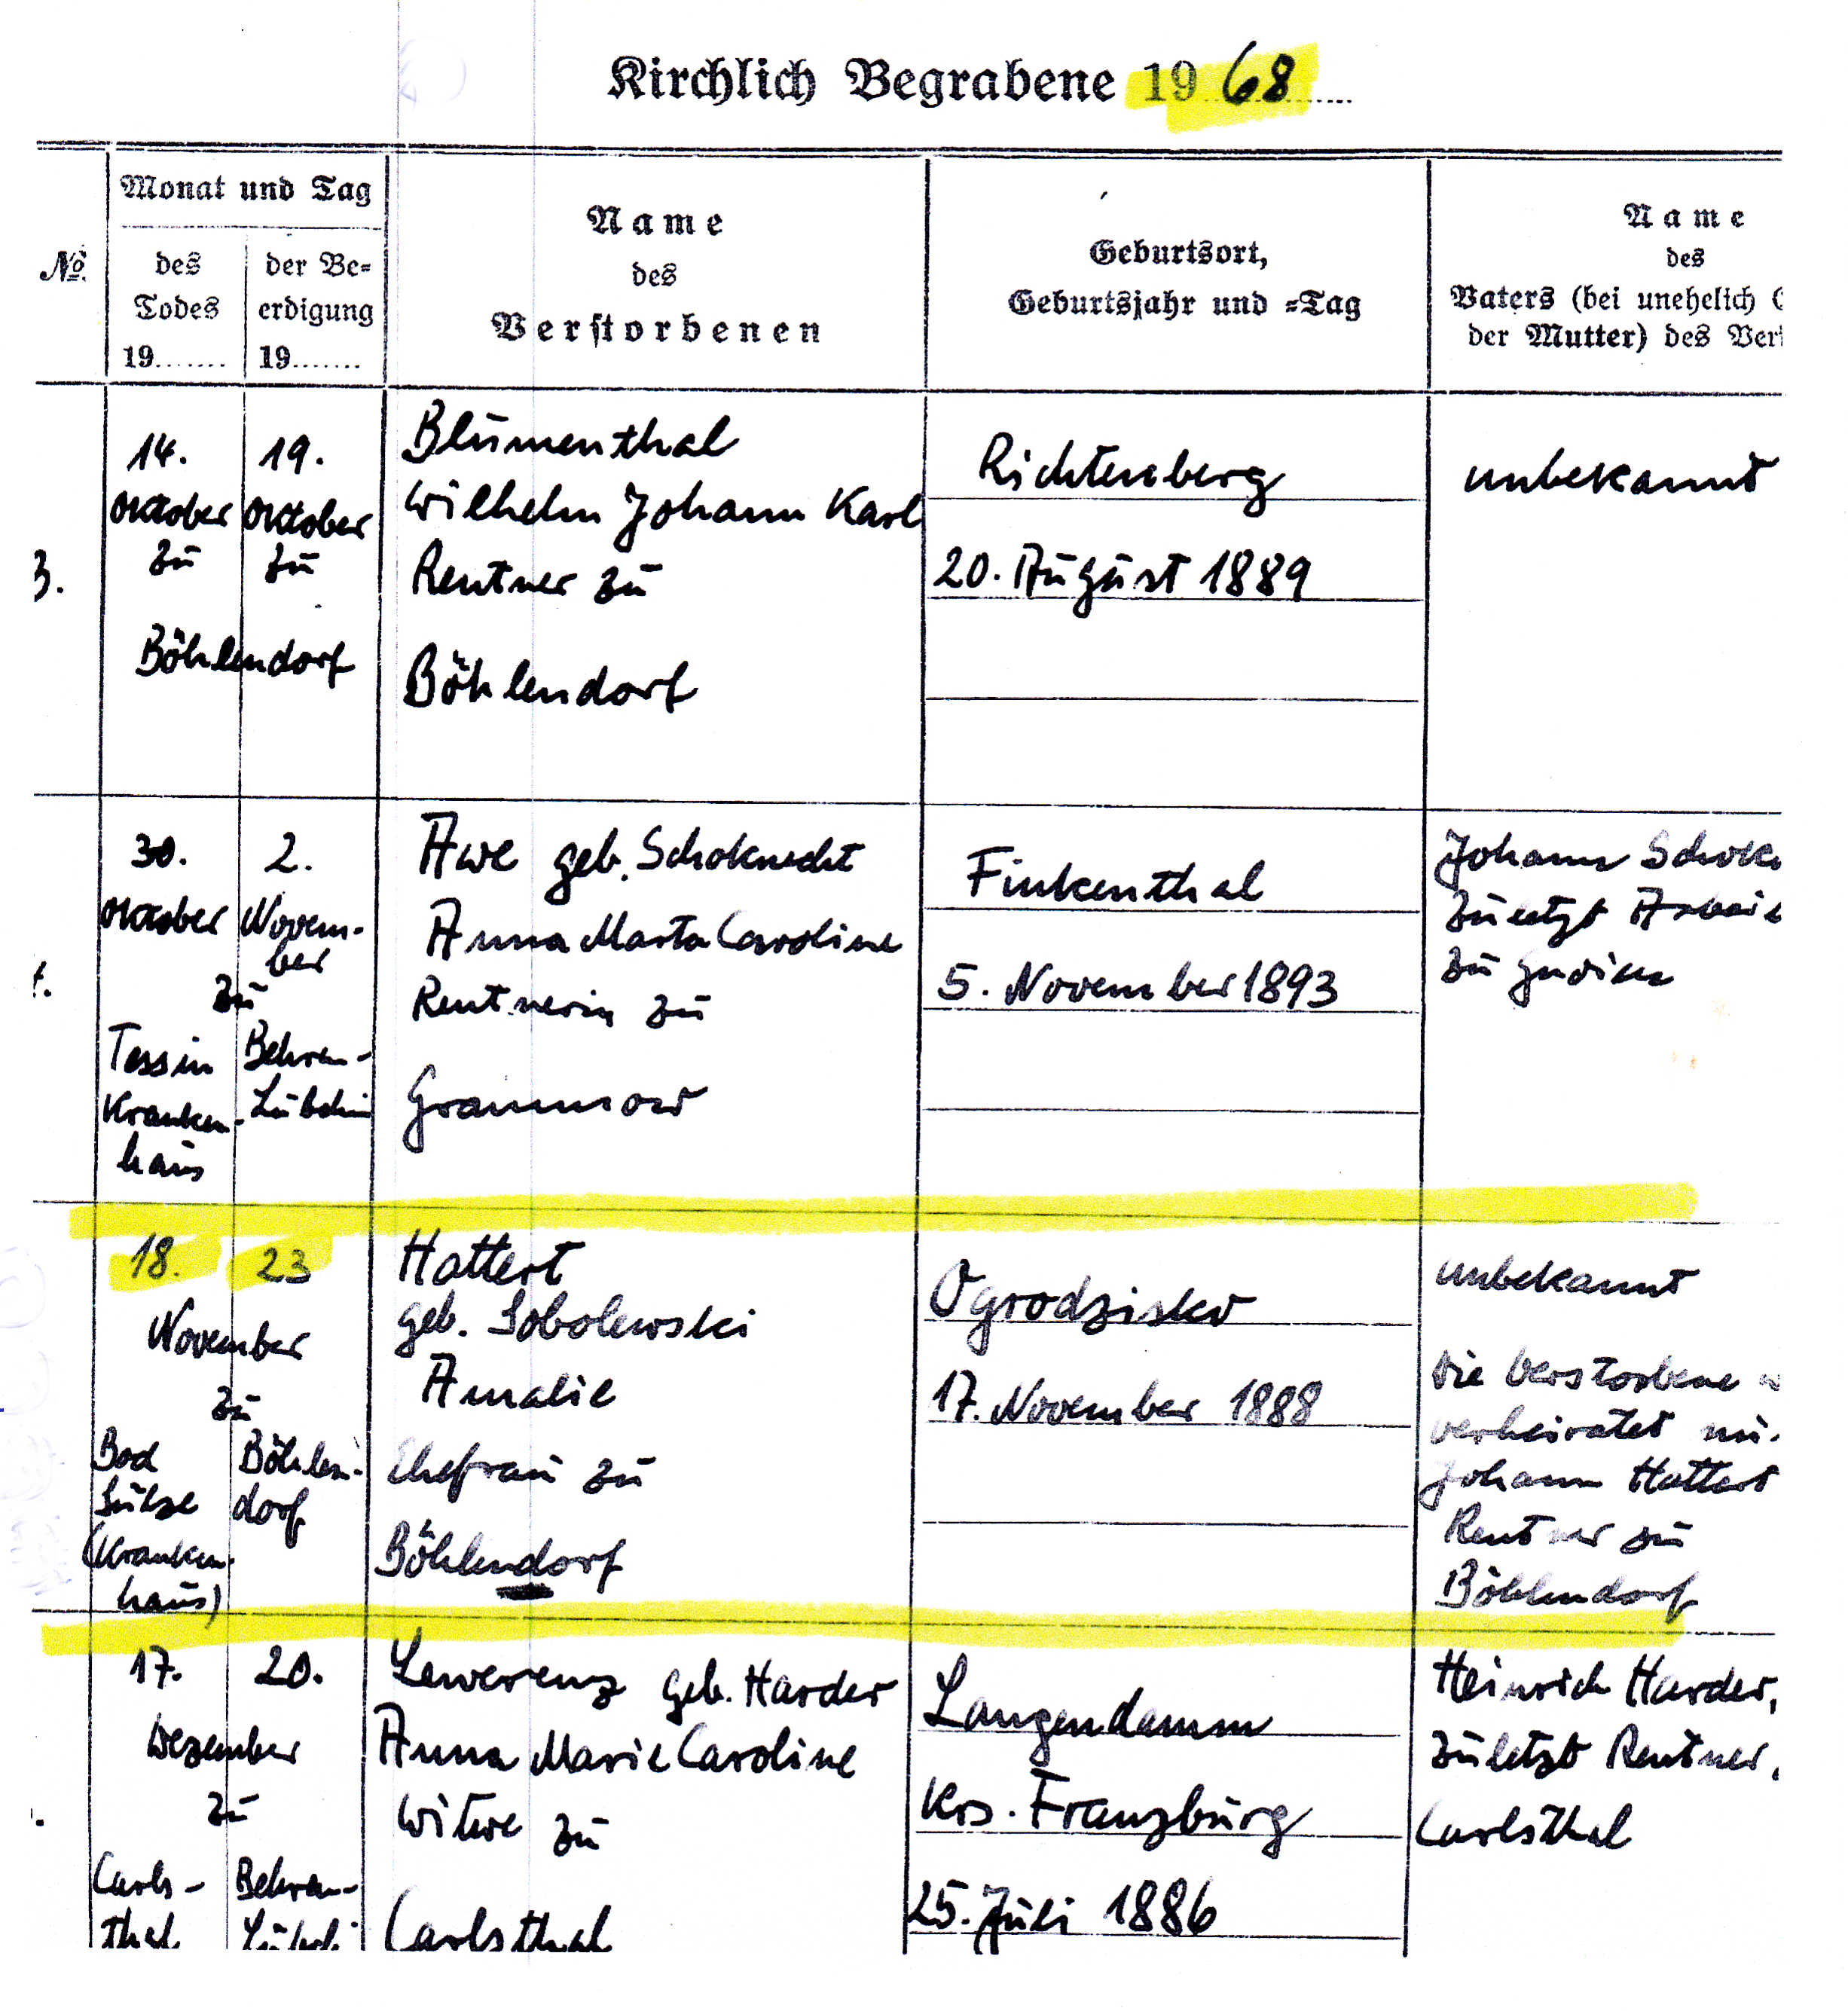 Kirchlich Begrabene 1968
№
Monat und Tag
des
Todes
19........
der Be-
erdigung
19........
Name
des
Verstorbenen
Geburtsort,
Geburtsjahr und =Tag
Name
des
Vaters (bei unehelich
der Mutter) des Ver
3.
14.
Oktober
zu
19.
Oktober
zu
Böhlendorf
Blumenthal
Wilhelm Johann Karl
Rentner zu
Böhlendorf
Richtenberg
20. August 1889
unbekannt
30.
Oktober
2.
Novem-
ber
zu
Tessin
Kranken-
haus
Behren-
Lübchin
Awe geb. Schoknecht
Anna Marta Caroline
Rentnerin zu
Grammow
Finkenthal
5. November 1893
Johann Schok
zuletzt Arbei
zu
18.
23
November
zu
Bad
Sülze
(Kranken-
haus)
Böhlen-
dorf
Hattert
geb. Sobolewski
Amalie
Ehefrau zu
Böhlendorf
Ogrodzisko
17. November 1888
unbekannt
Die Verstorbene w
verheiratet mi
Johann Hattert
Rentner zu
Böhlendorf
17.
20.
Dezember
zu
Carls-
thal
Behren-
Lübch
Lewerenz geb. Harder
Anna Marie Caroline
Witwe zu
Carlsthal
Langendamm
Krs. Franzburg
25. Juli 1886
Heinrich Harder,
zuletzt Rentner,
Carlsthal